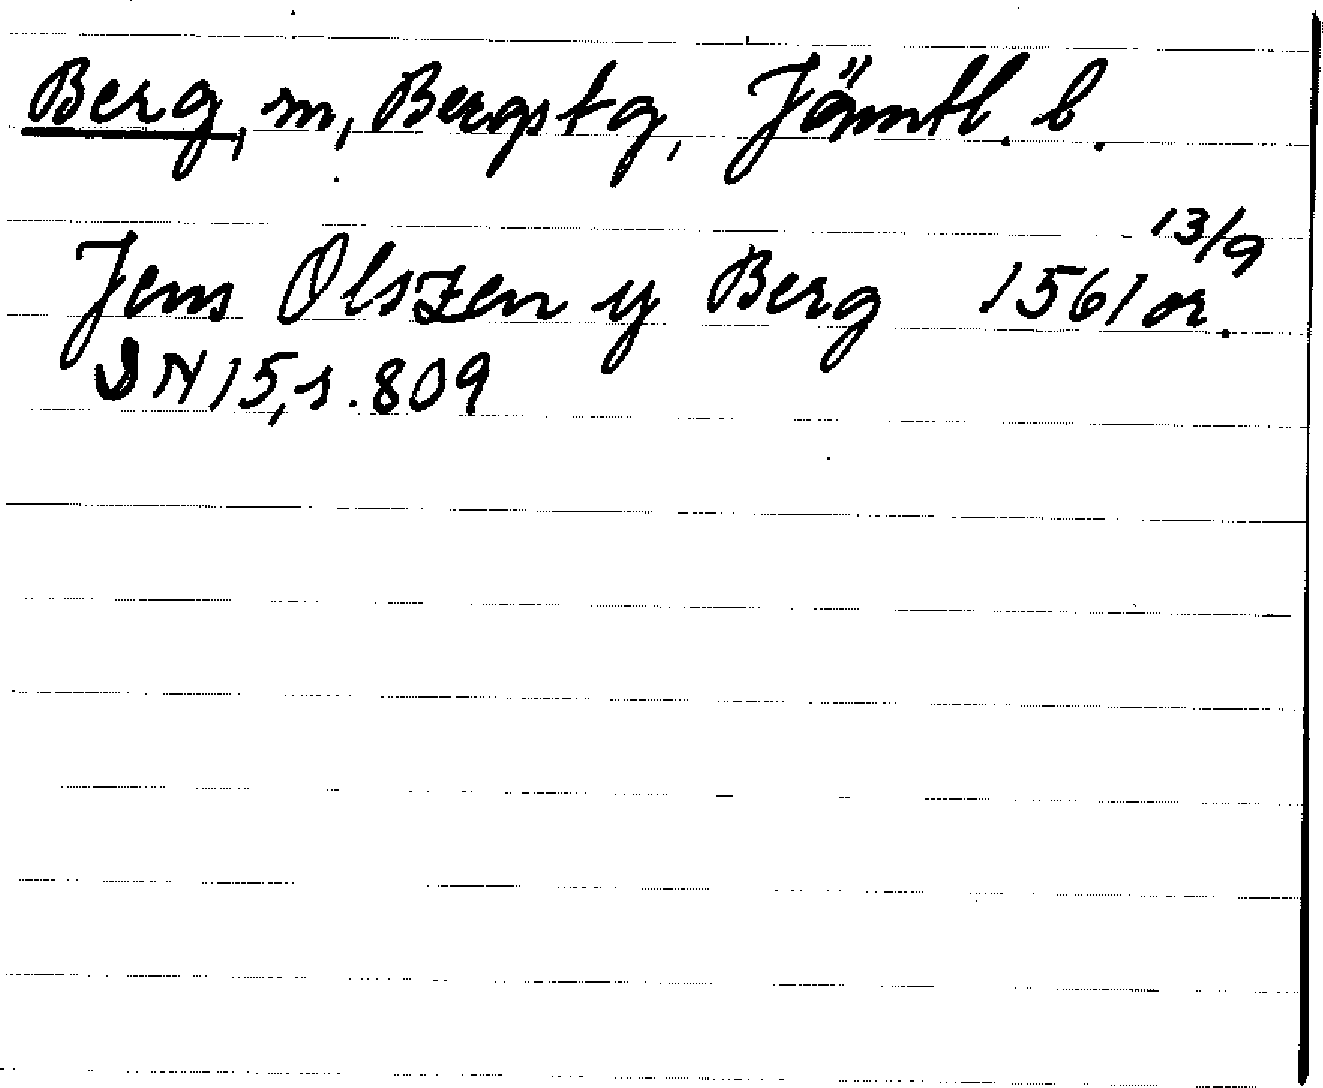 Berg, sn, Bergs tg, Jämtl. l.
Jens Olszen y Berg 1561 13/9 or.
DN 15, s. 809